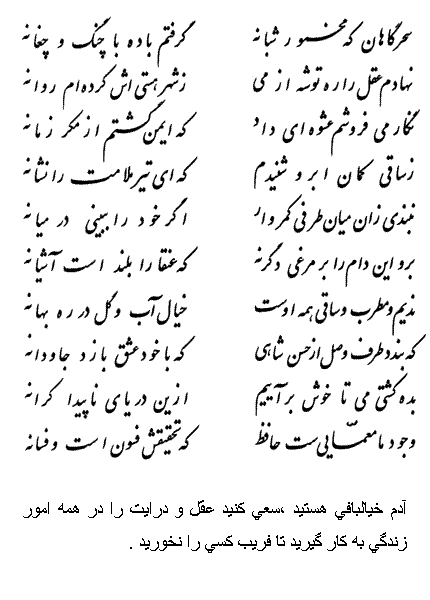 سحرگاهان که مخمور شبانه گرفتم باده با چنگ و چغانه
نهادم عقل را ره توشه از می ز شهر هستی اش کرده ام روانه
نگار می فروشم عشوه ای داد که ایمن گشتم از مکر زمانه
ز ساقی کمان ابرو شنیدم که ای تیر ملامت را نشانه
نبندی زان میان طرفی کمروار اگر خود را ببینی در میانه
برو این دام را بر مرغی دگر نه که عنقا را بلند است آشیانه
ندیم و مطرب و ساقی همه اوست خیال آب و گل در ره بهانه
که بندد طرف وصل از حسن شاهی که با خود عشق بازد جاودانه
بده کشتی می تا خوش برآییم ازین دریای ناپیدا کرانه
وجود ما معمایی ست حافظ که تحقیقش فسون است و فسانه
آدم خيالبافي هستيد ،سعي كنيد عقل و درايت را در همه امور
زندگي به كار گيريد تا فريب كسي را نخوريد .